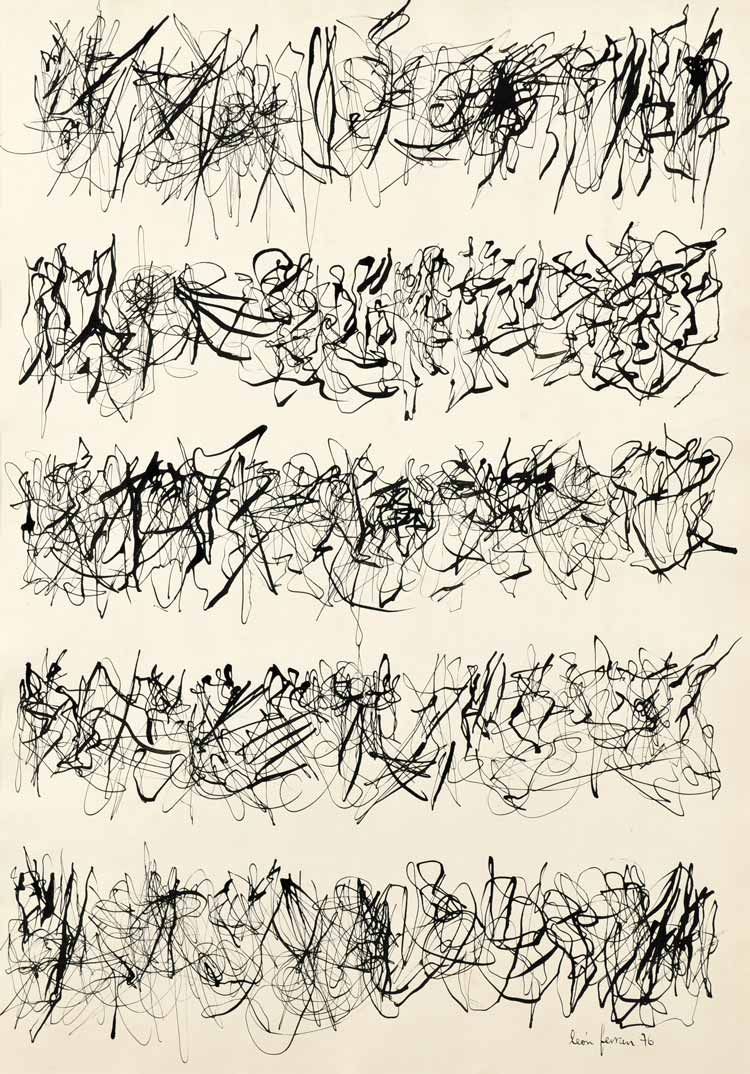 león ferrari 76